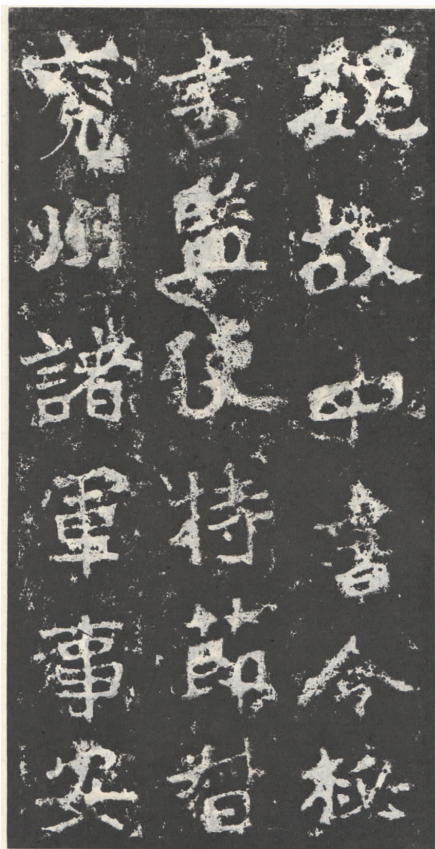 魏故中書令秘
書監使持節督
兖州諸軍事安